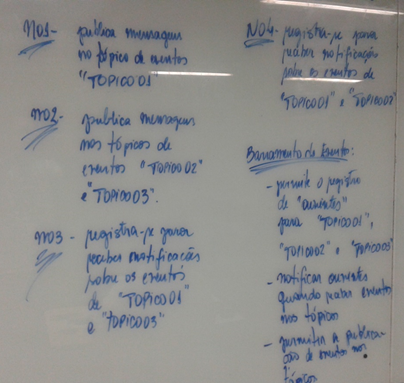 NO1- publica mensagem
no tópico de eventos
"TOPICO01"
NO2- publica mensagem
nos tópicos de
eventos "TOPICO02"
e "TOPICO03".
NO3 - registra-se para
receber notificação
sobre os eventos
de "TOPICO01"
e "TOPICO03"
NO4- registra-se para
receber notificação
sobre os eventos de
"TOPICO01" e "TOPICO02"
Barramento de Evento:
- permite o registro
de "ouvintes"
para "TOPICO01",
"TOPICO02" e "TOPICO03"
- notificar ouvintes
quando receber eventos
nos tópicos
- permitir a publica-
ção de eventos nos
tópicos